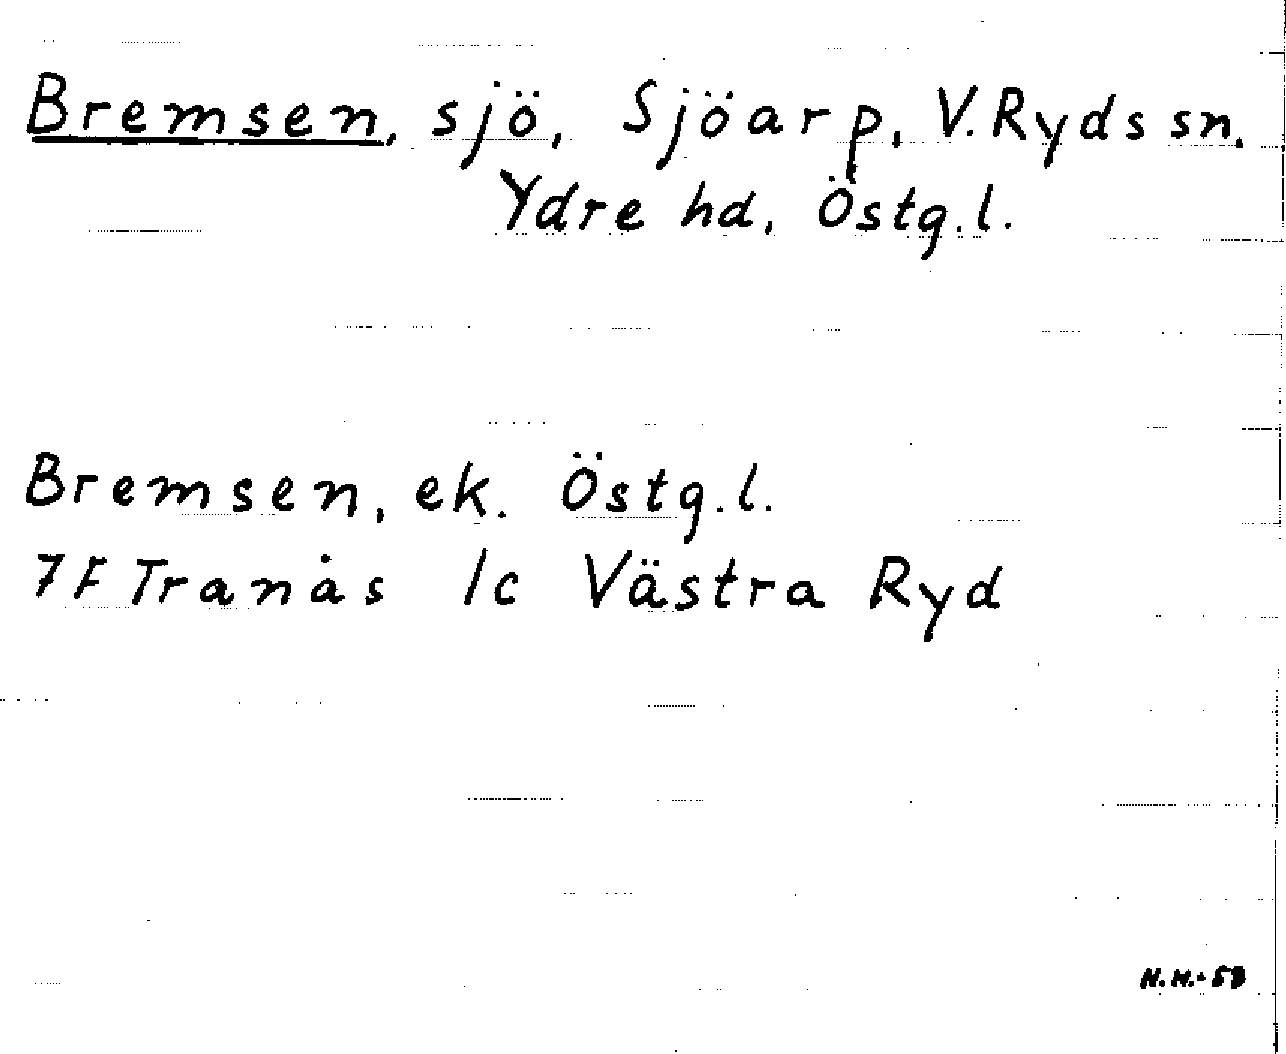 Bremsen, sjö, Sjöarp, V. Ryds sn.
Ydre hd, Östg.l.
Bremsen, ek. Östg.l.
7F Tranås 1c Västra Ryd